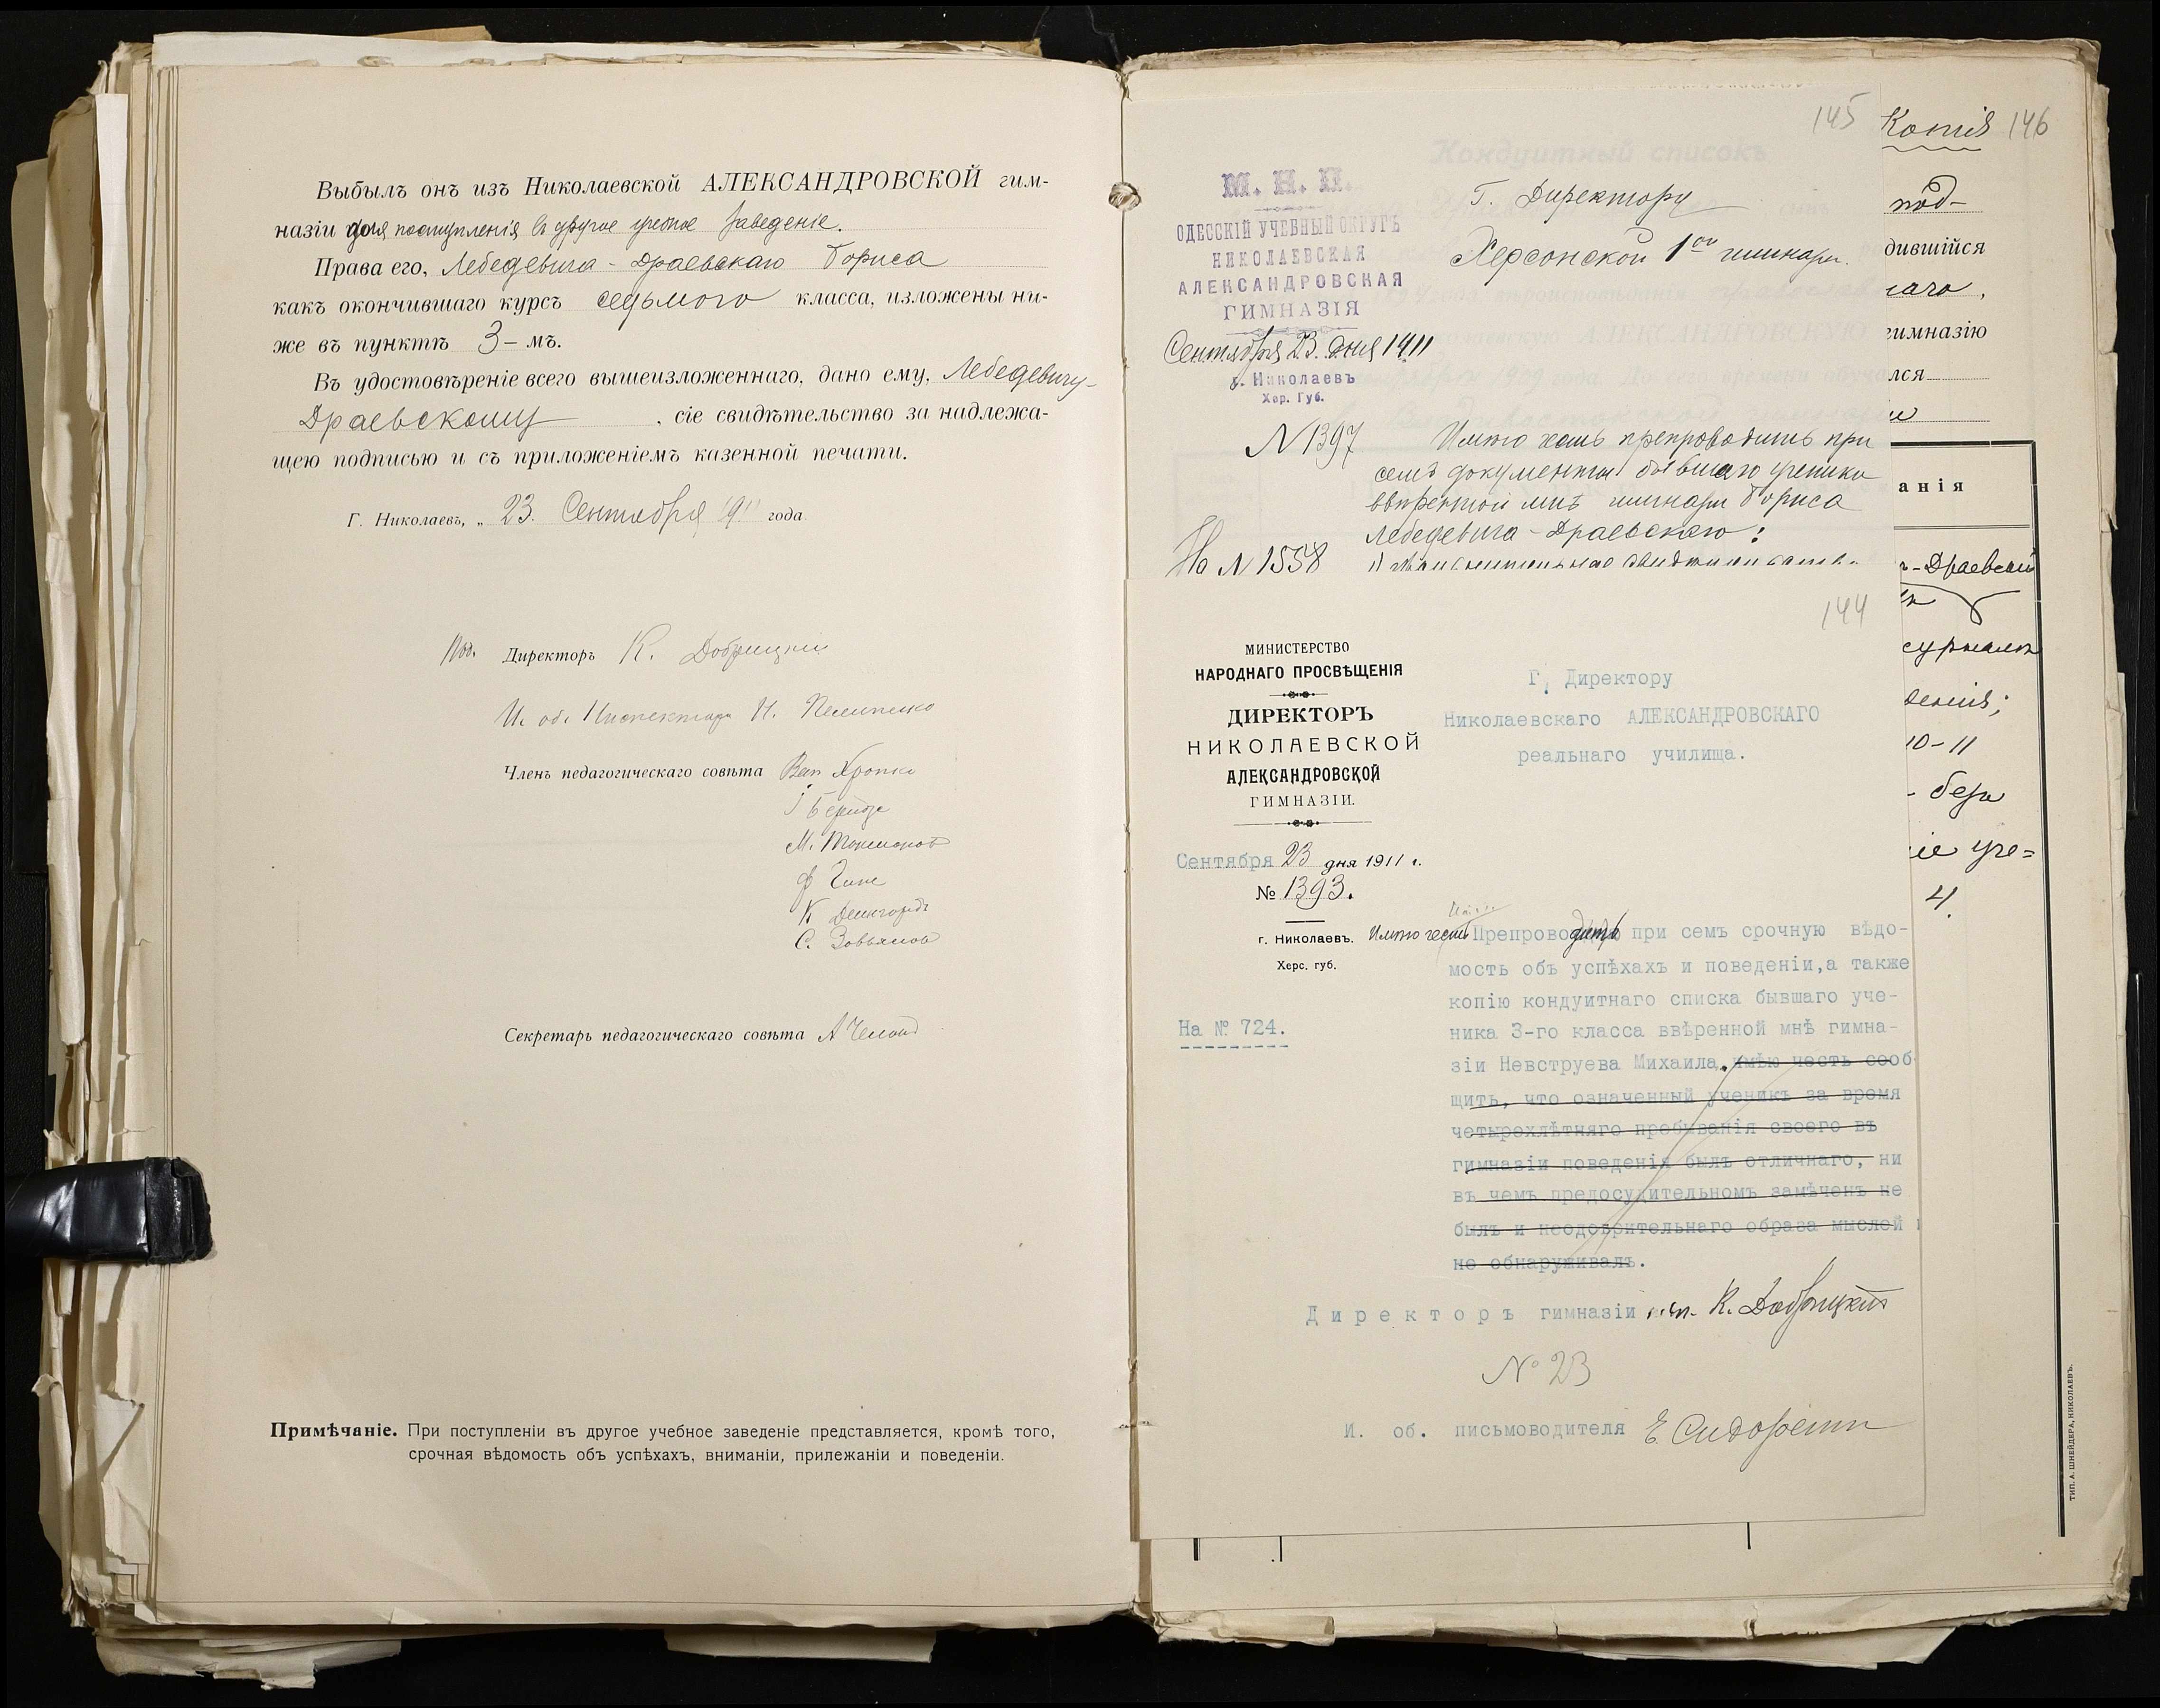 Выбылъ онъ изъ Николаевской АЛЕКСАНДРОВСКОЙ гим-
назіи для поступленія въ другое учебное заведеніе.
Права его, Лебедевича-Драевскаго Бориса
какъ окончившаго курсъ седьмого класса, изложены ни-
же въ пунктѣ 3-мъ.
Въ удостовѣреніе всего вышеизложеннаго, дано ему, Лебедевичу-
Драевскому, сіе свидѣтельство за надлежа-
щею подписью и съ приложеніемъ казенной печати.
Г. Николаевъ, „ 23. Сентября 1911 года
Под. Директоръ К. Добрицкій
И. об. Инспектора Н. Пелипенко
Членъ педагогическаго совѣта
Секретарь педагогическаго совѣта А
Примѣчаніе. При поступленіи въ другое учебное заведеніе представляется, кромѣ того,
срочная вѣдомость объ успѣхахъ, вниманіи, прилежаніи и поведеніи.
145
М. Н. П.
ОДЕССКІЙ УЧЕБНЫЙ ОКРУГЪ
НИКОЛАЕВСКАЯ
АЛЕКСАНДРОВСКАЯ
ГИМНАЗІЯ
Сентября 23. дня 1911
г. Николаевъ
Хер. Губ.
N 1397
На N 1558
Г. Директору
Херсонской 1ой гимназіи.
Имѣю честь препроводить при
семъ документы бывшаго ученика
ввѣренной мнѣ гимназіи Бориса
Лебедевича-Драевскаго:
144
МИНИСТЕРСТВО
НАРОДНАГО ПРОСВѢЩЕНІЯ
ДИРЕКТОРЪ
НИКОЛАЕВСКОЙ
АЛЕКСАНДРОВСКОЙ
ГИМНАЗІИ.
Сентября 23 дня 1911 г.
№ 1393.
г. Николаевъ.
Херс. губ.
На № 724.
Г. Директору
Николаевскаго АЛЕКСАНДРОВСКАГО
реальнаго училища.
Имѣю честь Препроводить при семъ срочную вѣдо-
мость объ успѣхахъ и поведеніи,а также
копію кондуитнаго списка бывшаго уче-
ника 3-го класса ввѣренной мнѣ гимна-
зіи Невструева Михаила. имѣю честь сооб
щить, что означенный ученикъ за время
четырехлѣтняго пребыванія своего въ
гимназіи поведенія былъ отличнаго, ни
въ чемъ предосудительномъ замѣченъ не
былъ и неодобрительнаго образа мыслей
не обнаруживалъ.
Директоръ гимназіи К. Добрицкій
№ 23
И. об. письмоводителя Е.
Копія 146
под-
дившійся
гимназію
лся
анія
-Драевскій
денія;
10-11
- безъ
уче=
4.
ТИП. А. ШНЕЙДЕРА, НИКОЛАЕВЪ.